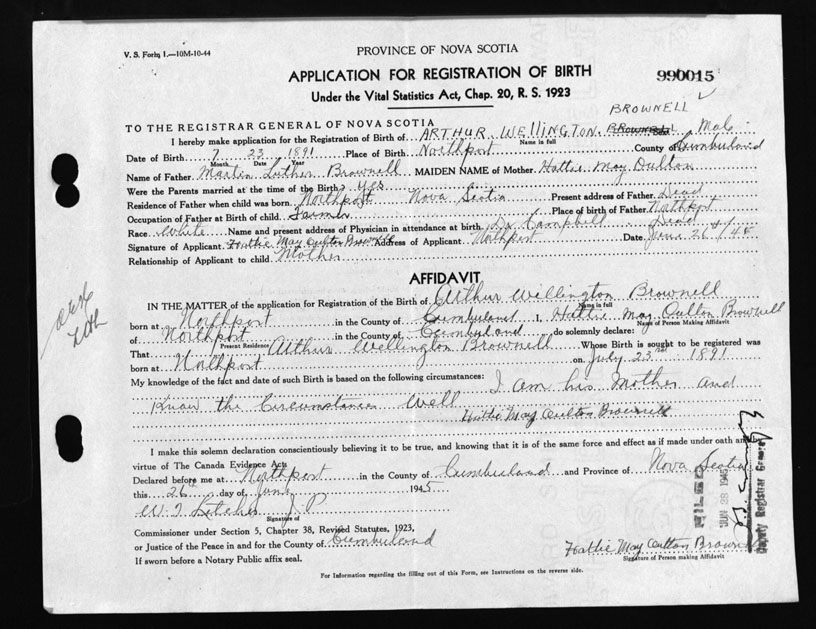 V. S. Form 1.—10M-10-44
PROVINCE OF NOVA SCOTIA
APPLICATION FOR REGISTRATION OF BIRTH
990015
Under the Vital Statistics Act, Chap. 20, R. S. 1923
BROWNELL
TO THE REGISTRAR GENERAL OF NOVA SCOTIA
I hereby make application for the Registration of Birth of ARTHUR WELLINGTON BROWNELL Male
Name in full Sex
Date of Birth 7 23 1891 Place of Birth Northport County of Cumberland
Month Date Year
Name of Father Martin Luther Brownell MAIDEN NAME of Mother Hattie May Oulton
Were the Parents married at the time of the Birth? Yes
Residence of Father when child was born Northport Nova Scotia Present address of Father Dead
Occupation of Father at Birth of child Farmer Place of birth of Father Northport
Race White Name and present address of Physician in attendance at birth Dr Campbell Dead
Signature of Applicant Hattie May Oulton Brownell Address of Applicant Northport Date June 26th/45
Relationship of Applicant to child Mother
AFFIDAVIT
IN THE MATTER of the application for Registration of the Birth of Arthur Willington Brownell
Name in full
born at Northport in the County of Cumberland I, Hattie May Oulton Brownell
Name of Person Making Affidavit
of Northport in the County of Cumberland do solemnly declare:
Present Residence
That Arthur Wellington Brownell Whose Birth is sought to be registered was
born at Northport on July 23 1891
My knowledge of the fact and date of such Birth is based on the following circumstances: I am his Mother and
Know the Circumstances Well
Hattie May Oulton Brownell
I make this solemn declaration conscientiously believing it to be true, and knowing that it is of the same force and effect as if made under oath and
virtue of The Canada Evidence Act.
Declared before me at Northport in the County of Cumberland and Province of Nova Scotia
this 26th day of June 1945
J P
Signature of
Commissioner under Section 5, Chapter 38, Revised Statutes, 1923,
or Justice of the Peace in and for the County of Cumberland
If sworn before a Notary Public affix seal.
Hattie May Oulton Brownell
Signature of Person making Affidavit
FILED
JUN 28 1945
Deputy Registrar General
For Information regarding the filling out of this Form, see Instructions on the reverse side.